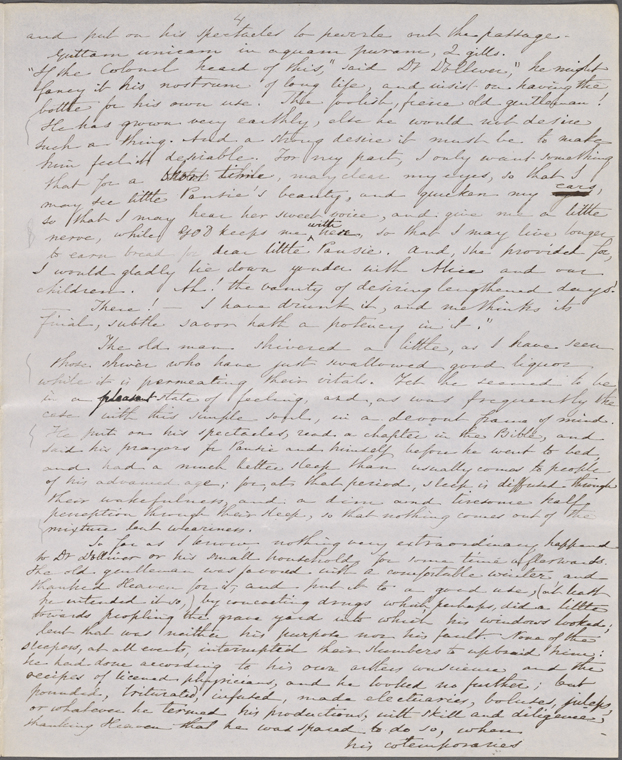 4
and put on his spectacles to pevrote out the passage.
Guttam unicam in aquam puram, 2 gills.
"If the Colonel heard of this," said Dr Dolliver, "he might
fancy it his nostrum of long life, and insist on having the
bottle for his own use. The foolish, fierce old gentleman!
He has grown very earthly, else he would not desire
such a thing. And a strong desire it must be to make
him feel it desirable. For my part, I only want something
that for a short time, may clear my eyes, so that I
may see little Pansie's beauty, and quicken my ears,
so that I may hear her sweet voice, and give me a little
nerve, while GOD keeps me here, so that I may live longer
with
to earn bread for dear little Pansie. And, she provided for,
I would gladly lie down yonder with Alice and our
children. Ah! the vanity of desiring lengthened days!
— There! — I have drunk it, and methinks its
final, subtle savor hath a potency in it."
The old man shivered a little, as I have seen
those shiver who have just swallowed good liquor
while it is permeating their vitals. Yet he seemed to be
in a pleasant state of feeling, and, as was frequently the
case with this simple soul, in a devout frame of mind.
He put on his spectacles, read a chapter in the Bible, and
said his prayers for Pansie and himself before he went to bed,
and had a much better sleep than usually comes to people
of his advanced age; for, at that period, sleep is diffused through
their wakefulness, and a dim and tiresome half
perception through their sleep, so that nothing comes out of the
mixture but weariness.
So far as I know nothing very extraordinary happened
to Dr Dolliver or his small household for some time afterwards.
The old gentleman was favored with a comfortable winter, and
thanked Heaven for it, and put it to a good use, (at least
he intended it so,) by concocting drugs which, perhaps, did a little
towards peopling the grave yard into which his windows looked;
but that was neither his purpose nor his fault. None of the
sleepers, at all events, interrupted their slumbers to upbraid him;
he had done according to his own artless conscience and the
recipes of licensed physicians, and he looked no further; but
pounded, triturated, infused, made electuaries, boluses, juleps,
or whatever he termed his productions, with skill and diligence,
thanking Heaven that he was spared to do so, when
his cotemporaries